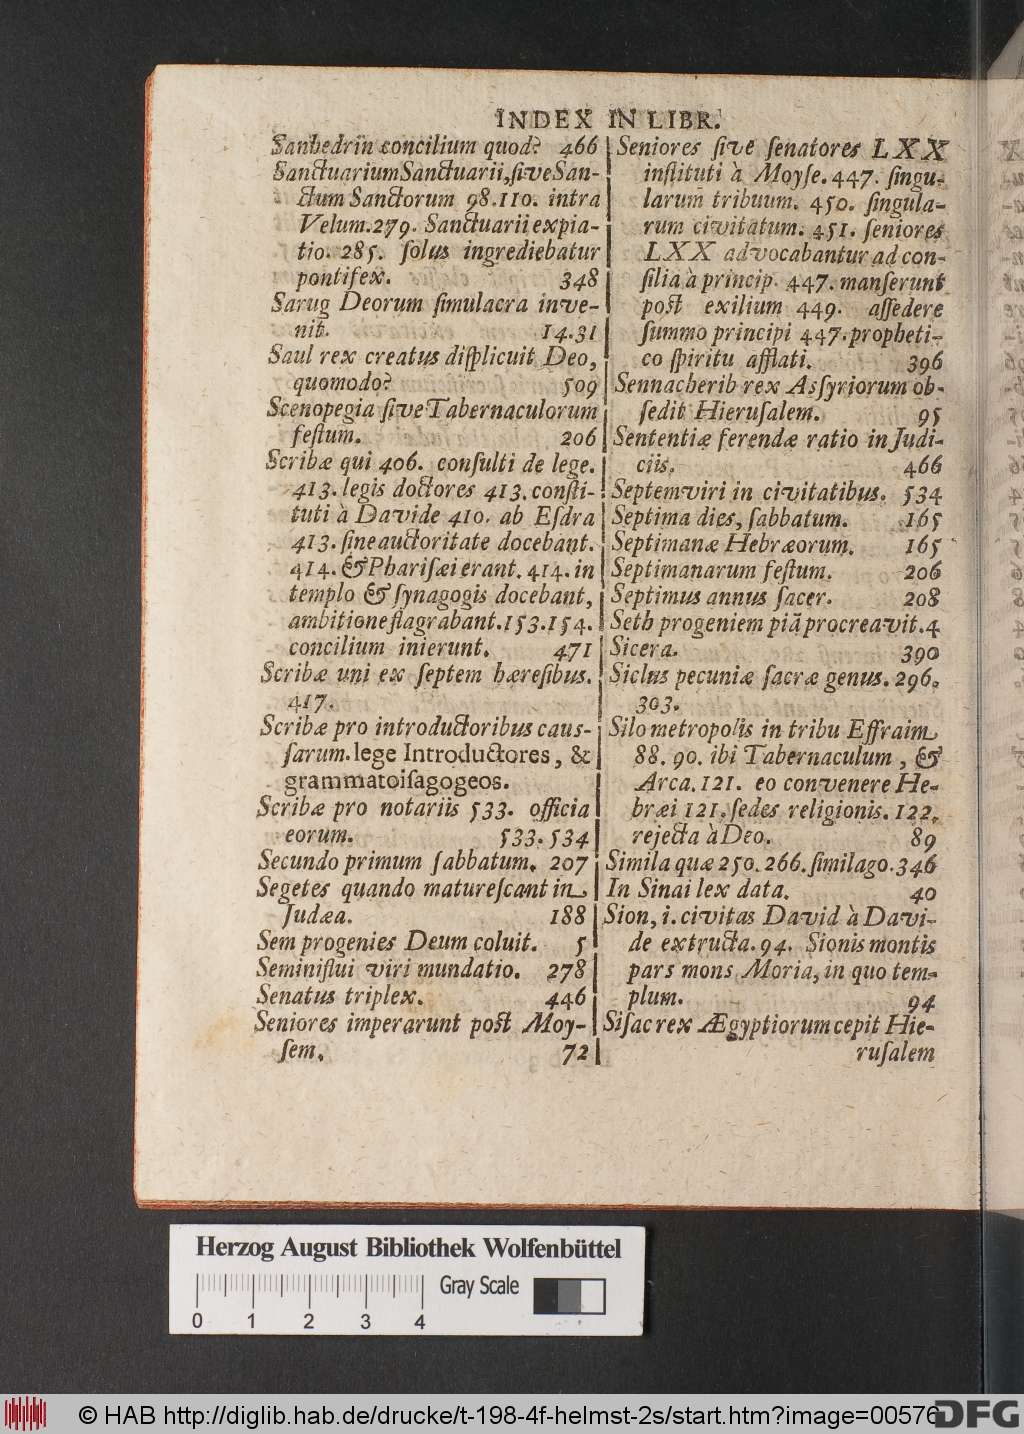 INDEX IN LIBR.
Sanhedrin concilium quod? 466
Sanctuarium Sanctuarii, ſive San-
ctum Sanctorum 98. 110. intra
Velum. 279. Sanctuarii expia-
tio. 285. ſolus ingrediebatur
pontifex. 348
Sarug Deorum ſimulacra inve-
nit. 14. 31
Saul rex creatus diſplicuit Deo,
quomodo? 509
Scenopegia ſive Tabernaculorum
feſtum. 206
Scribæ qui 406. conſulti de lege.
413. legis doctores 413. conſti-
tuti à Davide 410. ab Eſdra
413. ſine auctoritate docebant.
414. & Phariſæi erant. 414. in
templo & ſynagogis docebant,
ambitione flagrabant. 153. 154.
concilium inierunt. 471
Scribæ uni ex ſeptem hæreſibus.
417.
Scribæ pro introductoribus cauſ-
ſarum. lege Introductores, &
grammatoiſagogeos.
Scribæ pro notariis 533. officia
eorum. 533. 534
Secundo primum ſabbatum. 207
Segetes quando matureſcant in
Judæa. 188
Sem progenies Deum coluit. 5
Seminiflui viri mundatio. 278
Senatus triplex. 446
Seniores imperarunt poſt Moy-
ſem. 72
Seniores ſive ſenatores LXX
inſtituti à Moyſe. 447. ſingu-
larum tribuum. 450. ſingula-
rum civitatum. 451. ſeniores
LXX advocabantur ad con-
ſilia à princip. 447. manſerunt
poſt exilium 449. aſſedere
ſummo principi 447. propheti-
co ſpiritu afflati. 396
Sennacherib rex Aſſyriorum ob-
ſedit Hieruſalem. 95
Sententiæ ferendæ ratio in Judi-
ciis. 466
Septemviri in civitatibus. 534
Septima dies, ſabbatum. 165
Septimanæ Hebræorum. 165
Septimanarum feſtum. 206
Septimus annus ſacer. 208
Seth progeniem piā procreavit. 4
Sicera. 390
Siclus pecuniæ ſacræ genus. 296.
303.
Silo metropolis in tribu Effraim
88. 90. ibi Tabernaculum, &
Arca. 121. eo convenere He-
bræi 121. ſedes religionis. 122.
rejecta à Deo. 89
Simila quæ 250. 266. ſimilago. 346
In Sinai lex data. 40
Sion, i. civitas David à Davi-
de extructa. 94. Sionis montis
pars mons Moria, in quo tem-
plum. 94
Siſac rex Ægyptiorum cepit Hie-
ruſalem
Herzog August Bibliothek Wolfenbüttel
Gray Scale
0 1 2 3 4
© HAB http://diglib.hab.de/drucke/t-198-4f-helmst-2s/start.htm?image=00576
DFG